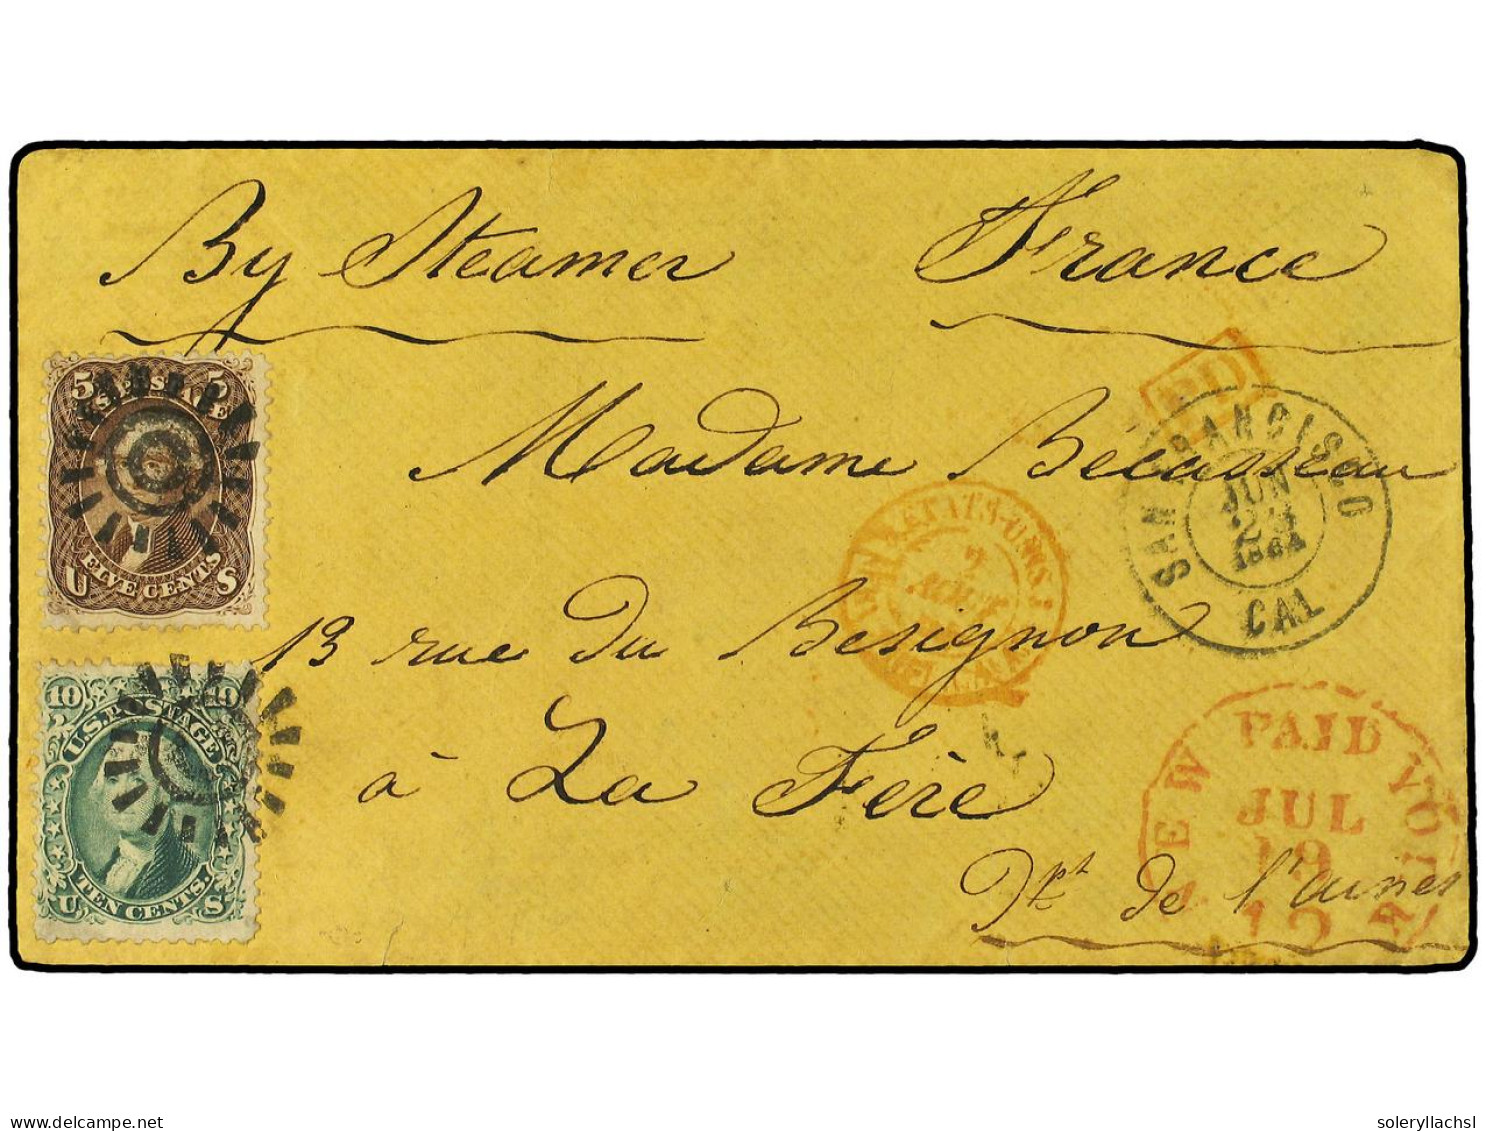 By Steamer France
5 5
U.S. POSTAGE
FIVE CENTS
U S
PD
SAN FRANCISCO
JUN
23
1864
CAL
Madame Becasseau
ETATS-UNIS
2
AOUT
13 rue du Besignon
10 10
U.S. POSTAGE
TEN CENTS.
U S
à La Fère
NEW YORK
PAID
JUL
19
12
Dpt de l'aisnes
delcampe.net
soleryllachsl